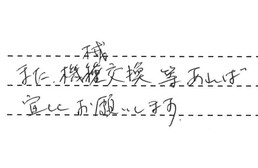 また、機械交換等あれば
宜しくお願いします.